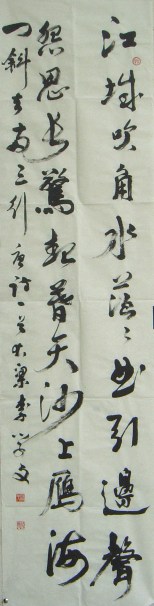 江城吹角水茫々曲引邊聲
怨思长驚起暮天沙上雁海
门斜去两三行唐诗一首大梁李学文